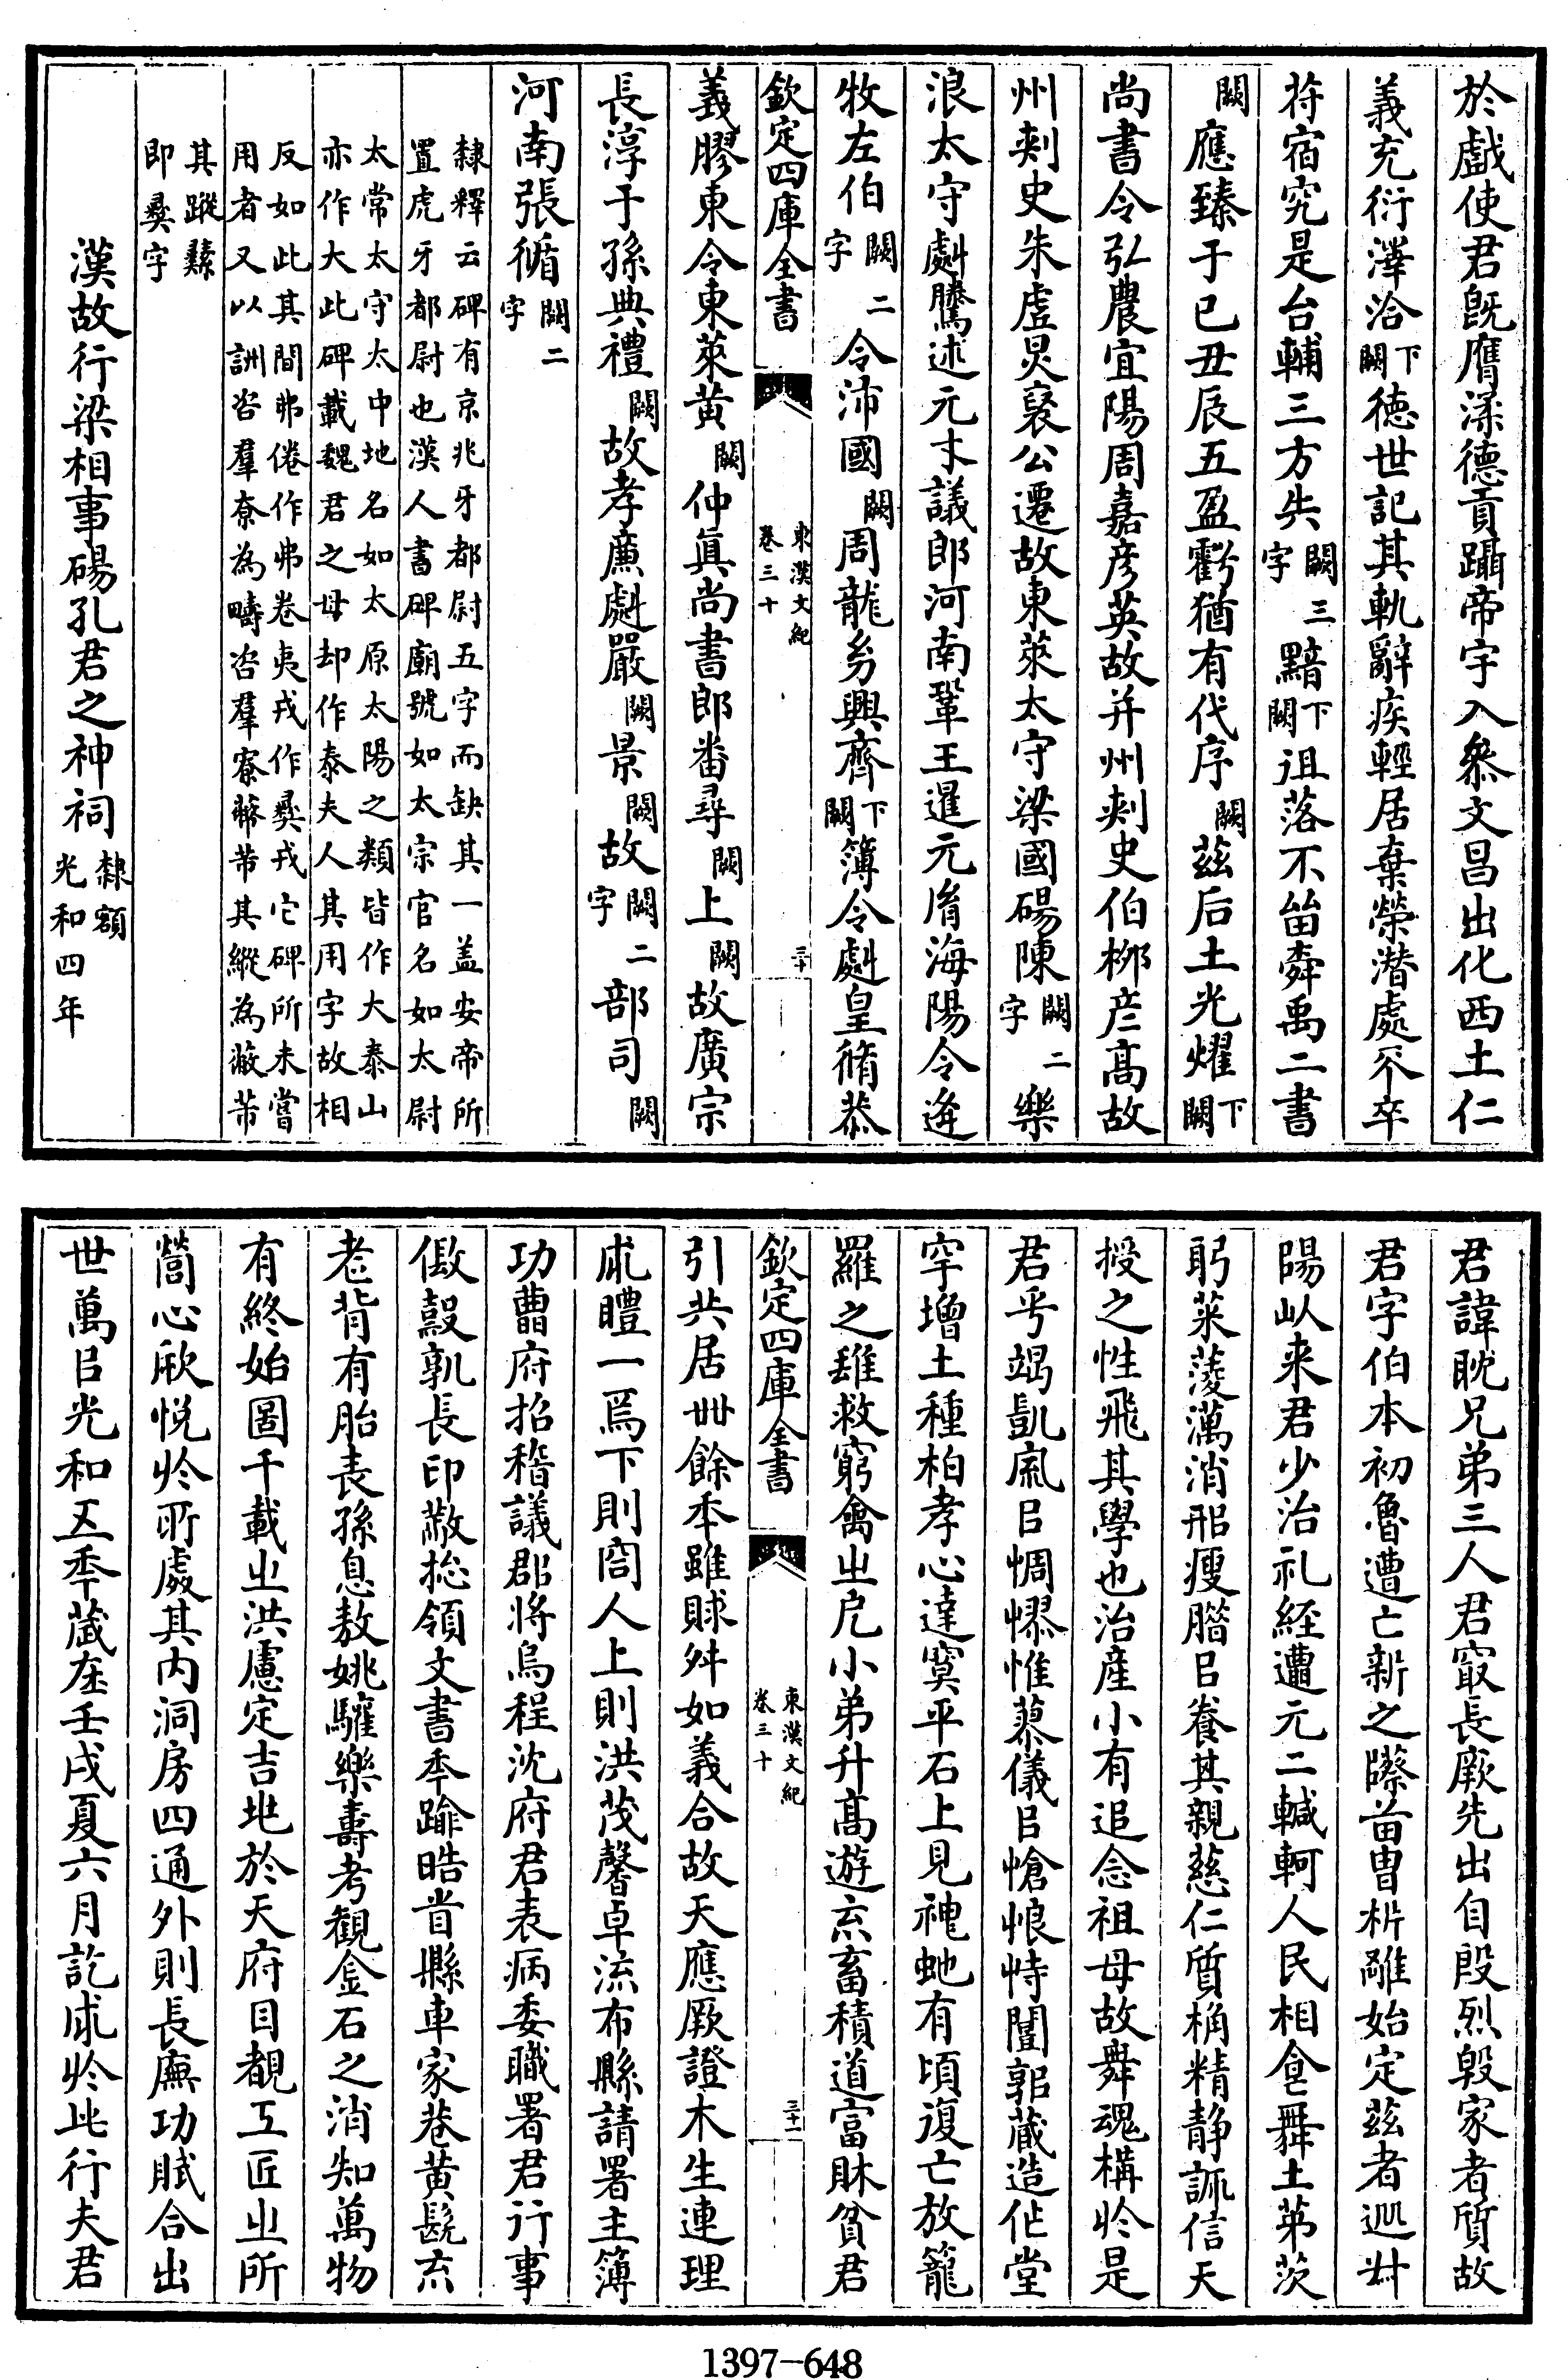 於戲使君旣膺渘德貢躡帝宇入叅文昌出化西土仁
義充衍澤洽下闕德世記其軌辭疾輕居棄榮潛處不卒
苻宿究是台輔三方失闕三字黯下闕徂落不畄舜禹二書
闕應臻于已丑辰五盈虧猶有代序闕茲后土光燿下闕
尚書令弘農宜陽周嘉彦英故并州刺史伯桞彦髙故
州刺史朱虛炅襃公遷故東萊太守梁國碭陳闕二字樂
浪太守劇騰述元才議郎河南鞏王暹元脩海陽令逄
牧左伯闕二字令沛國闕周龍㓜興齊下闕簿令劇皇脩恭
欽定四庫全書
東漢文紀
卷三十
三十
義膠東令東萊黄闕仲眞尚書郎番尋闕上闕故廣宗
長淳于孫典禮闕故孝廉劇嚴闕景闕故闕二字部司闕
河南張循闕二字
隸釋云碑有京兆牙都尉五字而缺其一盖安帝所
置虎牙都尉也漢人書碑廟號如太宗官名如太尉
太常太守太中地名如太原太陽之類皆作大泰山
亦作大此碑載魏君之母却作泰夫人其用字故相
反如此其間弗倦作弗卷夷戎作彞戎它碑所未嘗
用者又以詶咨羣尞為疇咨羣寮芾其縱為蔽芾
其蹤繇
即彞字
漢故行梁相事碭孔君之神祠隸額
光和四年
君諱耽兄弟三人君㝡長厥先出自殷烈毁家者質故
君字伯本初魯遭亡新之際苗胄析離始定茲者𨒫丗
陽以来君少治礼経遭元二轗軻人民相食舞土茅茨
躬菜蔆濿消邢瘦腊㠯養其親慈仁質桷精静訴信天
授之性飛其學也治産小有追念祖母故舞魂構於是
君乎竭凱風㠯惆憀惟蓼儀㠯愴悢恃闓郭蔵造作堂
宇增土種柏孝心達冥平石上見神虵有頃復亡放籠
羅之雉救窮禽之戹小弟升髙游亦畜積道富財貧君
欽定四庫全書
東漢文紀
卷三十
三十一
引共居丗餘秊雖賕舛如義合故天應厥證木生連理
成軆一焉下則容人上則洪茂馨卓流布縣請署主簿
功曹府招稽議郡將烏程沈府君表病委職署君行事
假穀孰長印黻揔領文書秊踰皓首縣車家巷黄髮亦
老背有胎表孫息敖姚驩樂壽考觀金石之消知萬物
有終始圖千載之洪慮定吉地於天府目覩工匠之所
營心欣悅於所處其内洞房四通外則長廡功賦合出
世萬㠯光和五秊嵗在壬戌夏六月訖成於此行夫君
1397-648